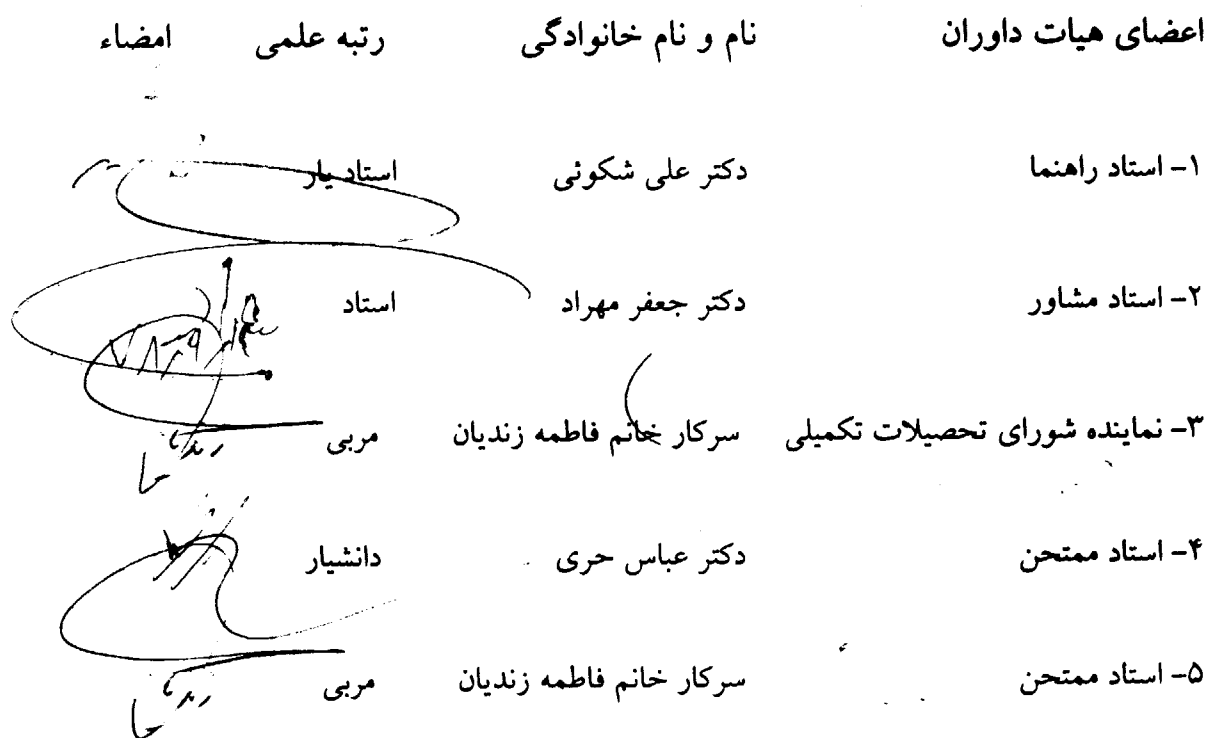 اعضای هیات داوران نام و نام خانوادگی رتبه علمی امضاء
۱- استاد راهنما دکتر علی شکوئی استادیار
۲- استاد مشاور دکتر جعفر مهراد استاد
۳- نماینده شورای تحصیلات تکمیلی سرکار خانم فاطمه زندیان مربی
۴- استاد ممتحن دکتر عباس حری دانشیار
۵- استاد ممتحن سرکار خانم فاطمه زندیان مربی